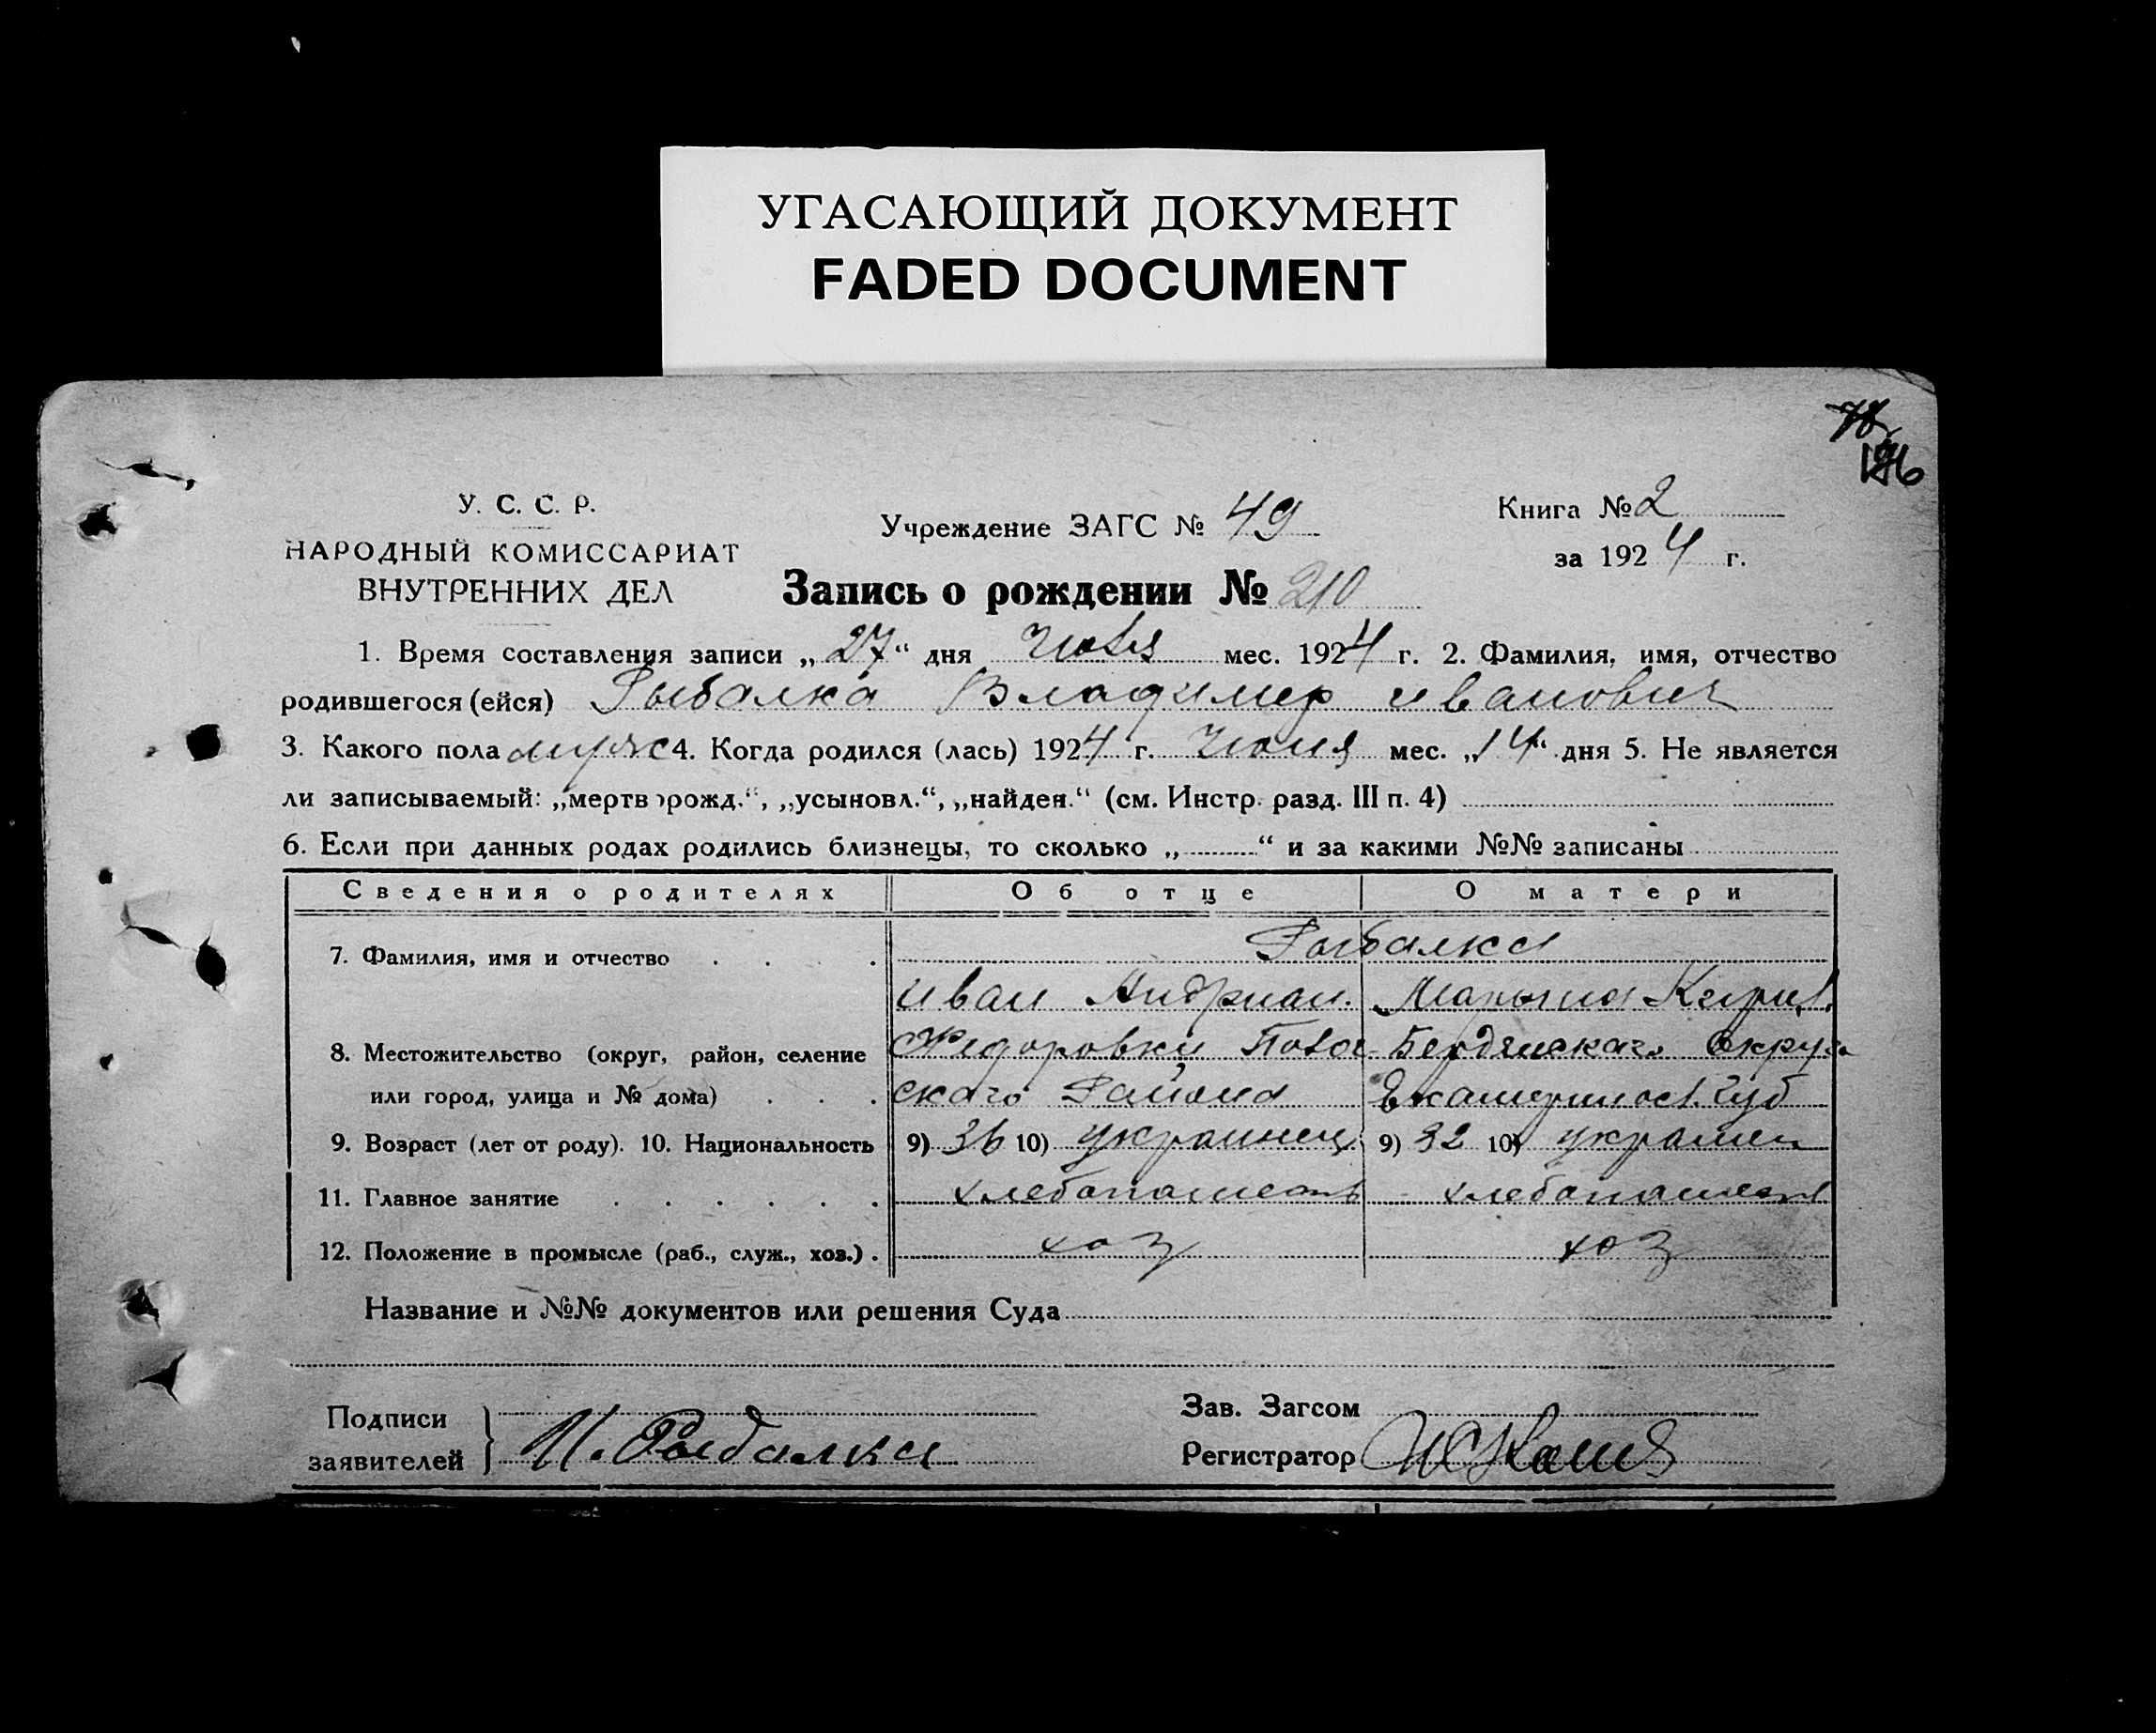 УГАСАЮЩИЙ ДОКУМЕНТ
FADED DOCUMENT
196
У. С. С. Р.
НАРОДНЫЙ КОМИССАРИАТ
ВНУТРЕННИХ ДЕЛ
Учреждение ЗАГС № 49
Книга № 2
за 1924 г.
Запись о рождении № 210
1. Время составления записи „27“ дня мес. 1924 г. 2. Фамилия, имя, отчество
родившегося (ейся) Рыбалка Владимир иванович
3. Какого пола муж 4. Когда родился (лась) 1924 г. Июня мес. „14“ дня 5. Не является
ли записываемый: „мертворожд.“, „усыновл.“, „найден.“ (см. Инстр. разд. III п. 4)
6. Если при данных родах родились близнецы, то сколько „ “ и за какими №№ записаны
Сведения о родителях Об отце О матери
7. Фамилия, имя и отчество . . . . Рыбалка
иван Андриан. Марына
8. Местожительство (округ, район, селение Федоровки Бердянскаго Округа
или город, улица и № дома) . . . скаго Района Екатериносл. Губ
9. Возраст (лет от роду). 10. Национальность 9) 36 10) украинец 9) 32 10) украин
11. Главное занятие . . . . . . хлебопашест хлебопашест
12. Положение в промысле (раб., служ., хоз.) . хоз хоз
Название и №№ документов или решения Суда
Подписи
заявителей И. Рыбалка
Зав. Загсом
Регистратор